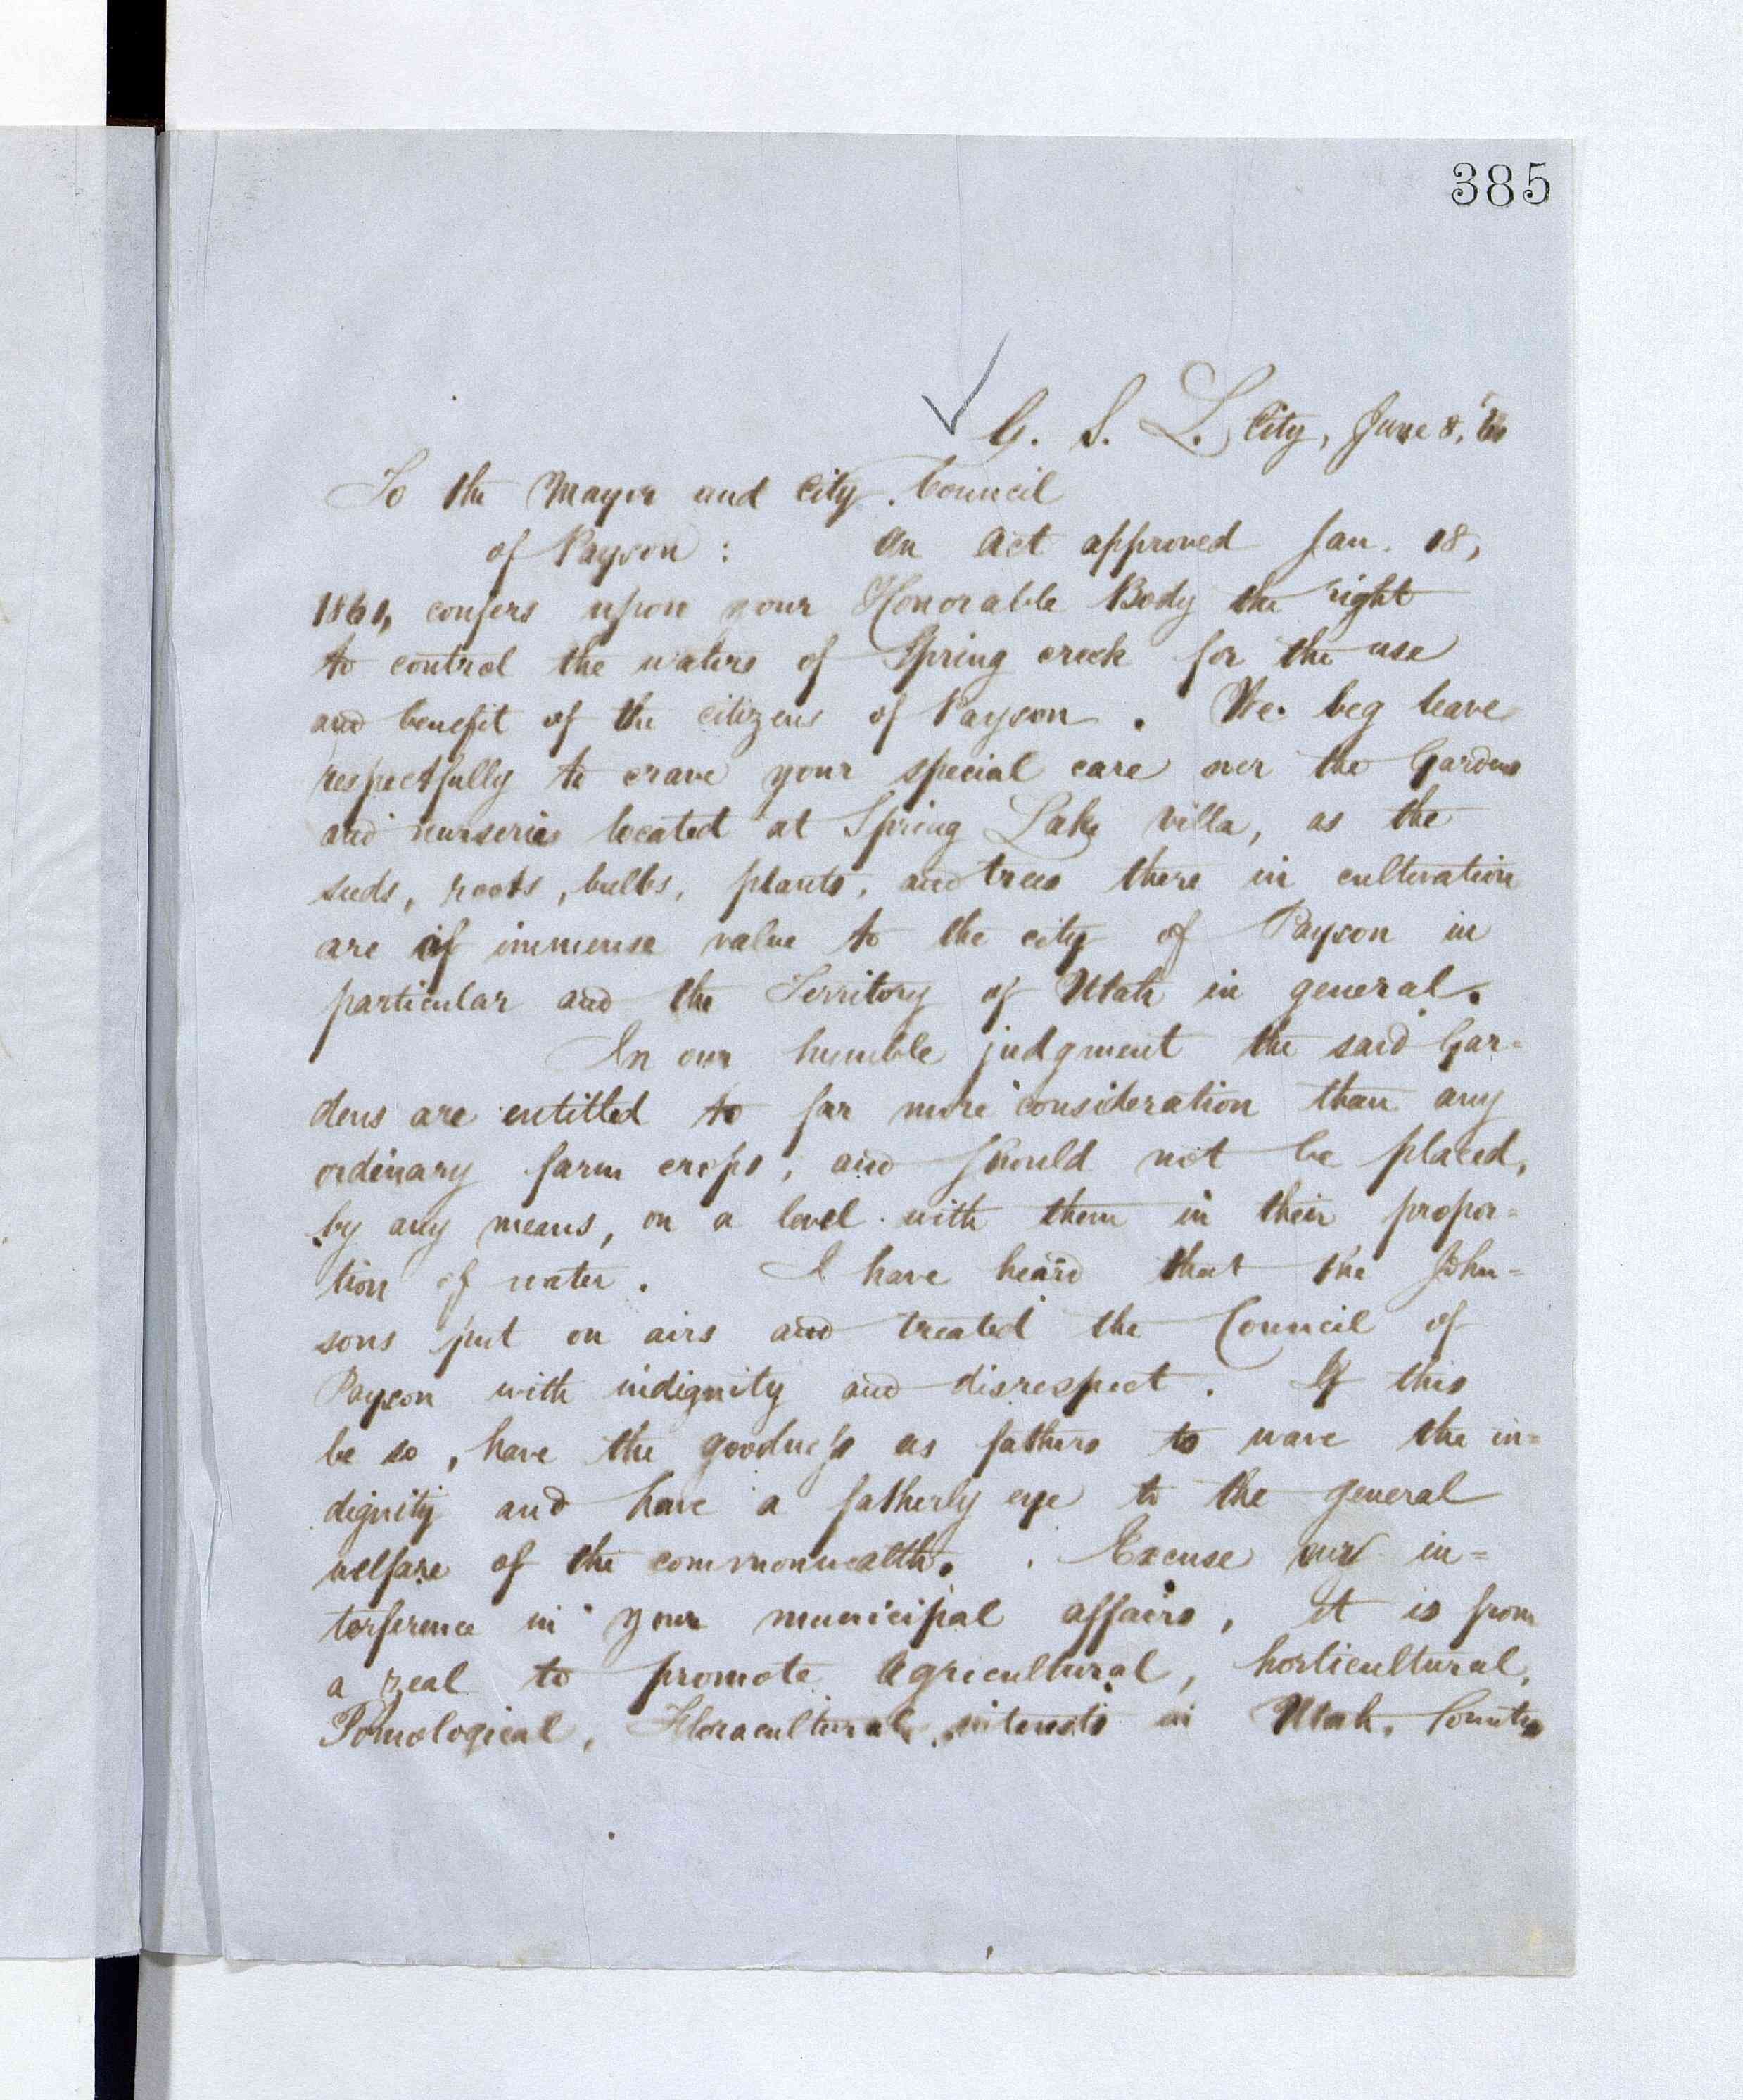 385
G. S. L. City, June 8, '66
To the Mayor and City Council
of Payson : An Act approved Jan. 18,
1861, confers upon your Honorable Body the right
to control the waters of Spring creek for the use
and benefit of the citizens of Payson . We beg leave
respectfully to crave your special care over the Gardens
and nurseries located at Spring Lake Villa, as the
seeds, roots, bulbs, plants, and trees there in cultivation
are of immense value to the city of Payson in
particular and the Territory of Utah in general.
In our humble judgment the said Gar=
dens are entitled to far more consideration than any
ordinary farm crops, and should not be placed,
by any means, on a level with them in their propor=
tion of water. I have heard that the John=
sons put on airs and treated the Council of
Payson with indignity and disrespect. If this
be so, have the goodness as fathers to wave the in=
dignity and have a fatherly eye to the general
welfare of the commonwealth. Excuse our in=
terference in your municipal affairs, it is from
a zeal to promote Agricultural, horticultural,
Pomological, Floracultural interests in Utah County